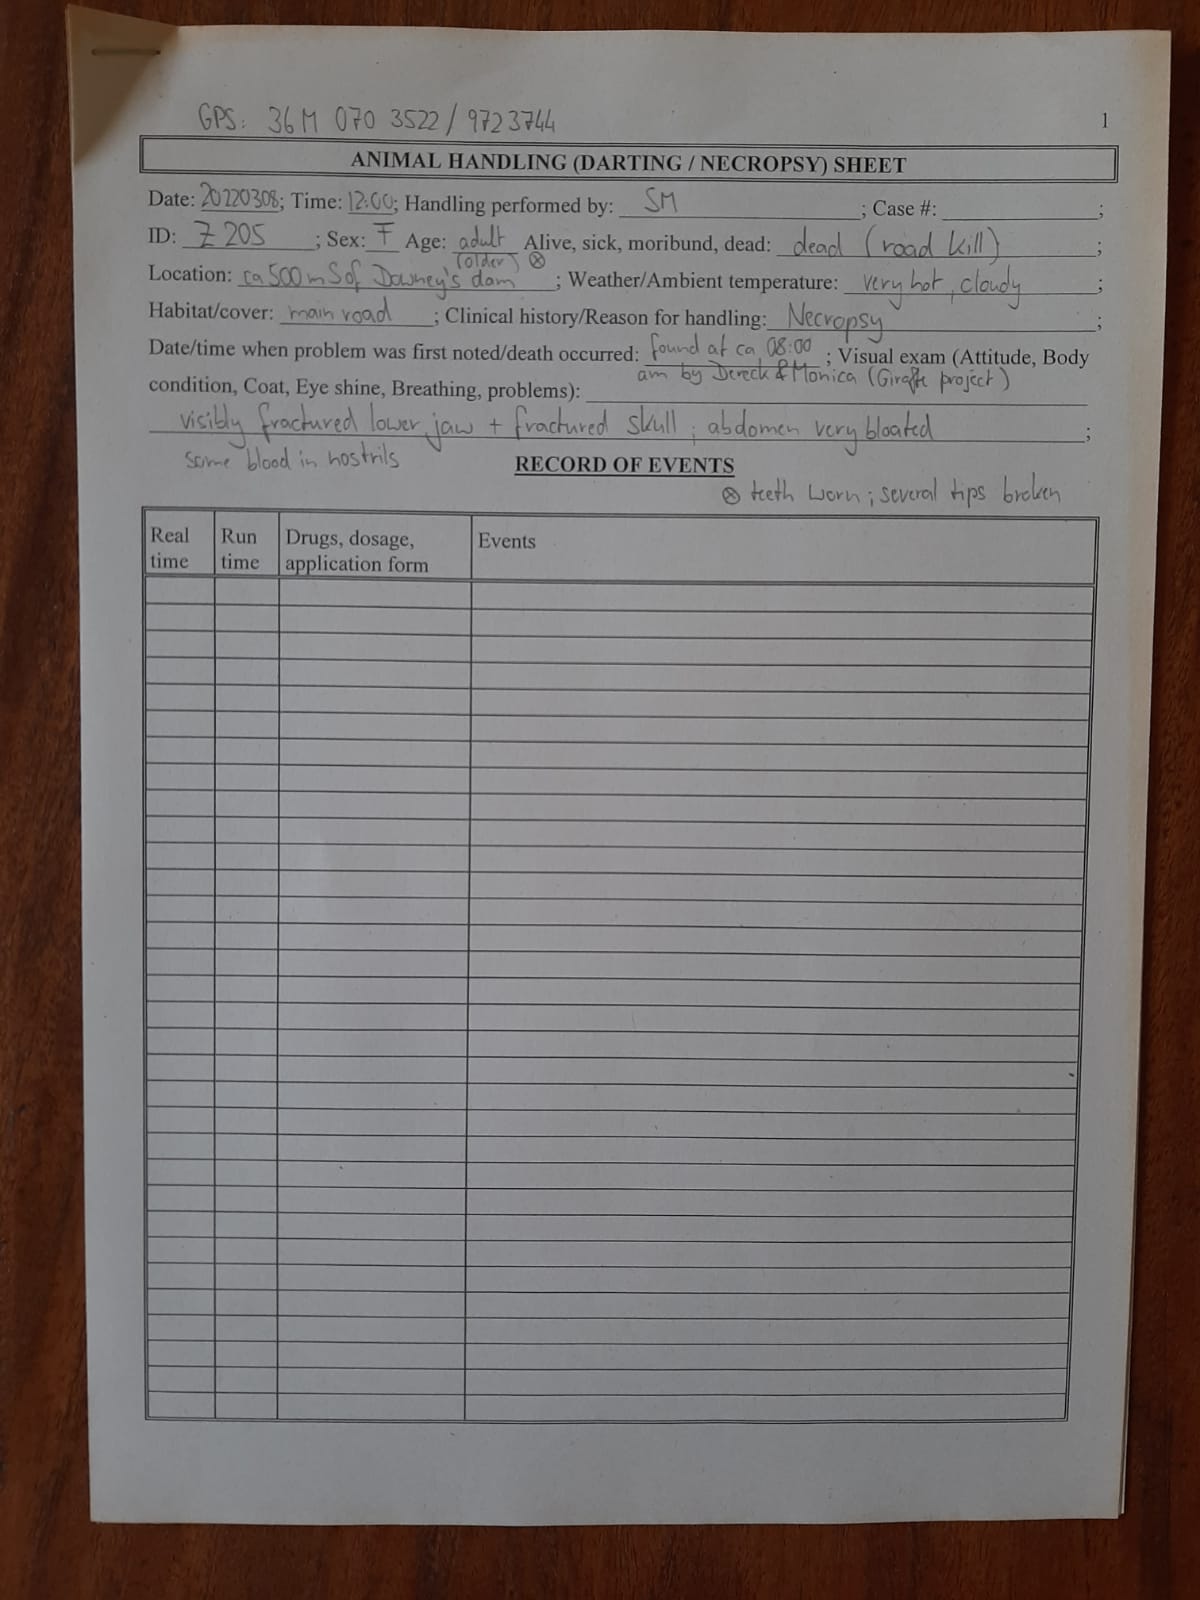 GPS: 36M 070 3522 / 9723744
1
ANIMAL HANDLING (DARTING / NECROPSY) SHEET
Date: 20220308; Time: 12:00; Handling performed by: SM ; Case #: ;
ID: Z 205 ; Sex: F Age: adult Alive, sick, moribund, dead: dead (road kill) ;
(older) ⊗
Location: ca 500 m S of Downey's dam ; Weather/Ambient temperature: very hot, cloudy ;
Habitat/cover: main road ; Clinical history/Reason for handling: Necropsy ;
Date/time when problem was first noted/death occurred: found at ca 08:00 ; Visual exam (Attitude, Body
am by Dereck & Monica (Giraffe project)
condition, Coat, Eye shine, Breathing, problems):
visibly fractured lower jaw + fractured skull ; abdomen very bloated ;
some blood in nostrils
RECORD OF EVENTS
⊗ teeth worn ; several tips broken
Real time Run time Drugs, dosage, application form Events